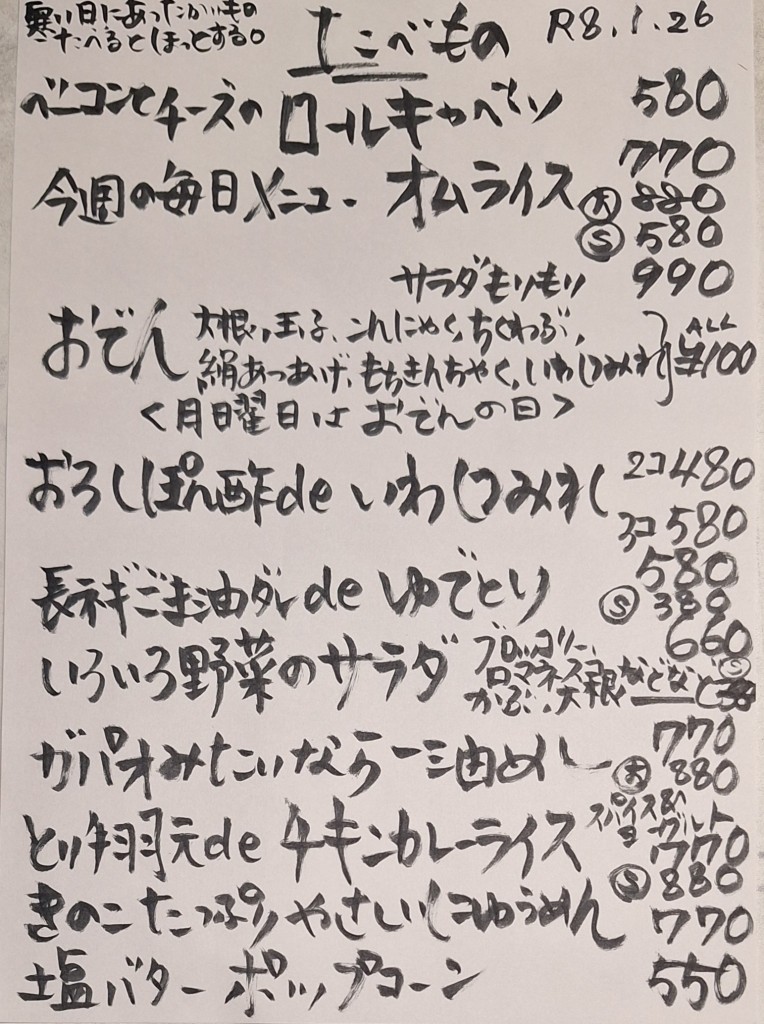 寒い日にあったかいもの
たべるとほっとする。
たべもの R8.1.26
ベーコンとチーズの ロールキャベツ 580
今週の毎日メニュー オムライス 770
大 880
S 580
サラダもりもり 990
おでん 大根、玉子、こんにゃく、ちくわぶ、
絹あつあげ、もちきんちゃく、いわしつみれ ALL ¥100
<月曜日は おでんの日>
おろしぽん酢de いわしつみれ 2コ 480
3コ 580
長ネギごま油ダレde ゆでとり 580
S 380
いろいろ野菜のサラダ 660
ブロッコリー、
ロマネスコ
かぶ、大根などなど S
ガパオみたいならー油めし 770
大 880
とり手羽元de チキンカレーライス スパイス&ヨーグルト 770
S 880
きのこたっぷりやさいにゅうめん 770
塩バターポップコーン 550